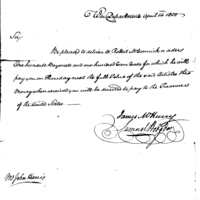 War Department April 14 1800
Sir
Be pleased to deliver to Robert McCormick or order
One hundred Bayonets and one hundred for which he will
pay you on Thursday next the full Value of the said articles this
Money when received you will be directed to pay to the Treasurer
of the United States
James McHenry
Mr John Harris